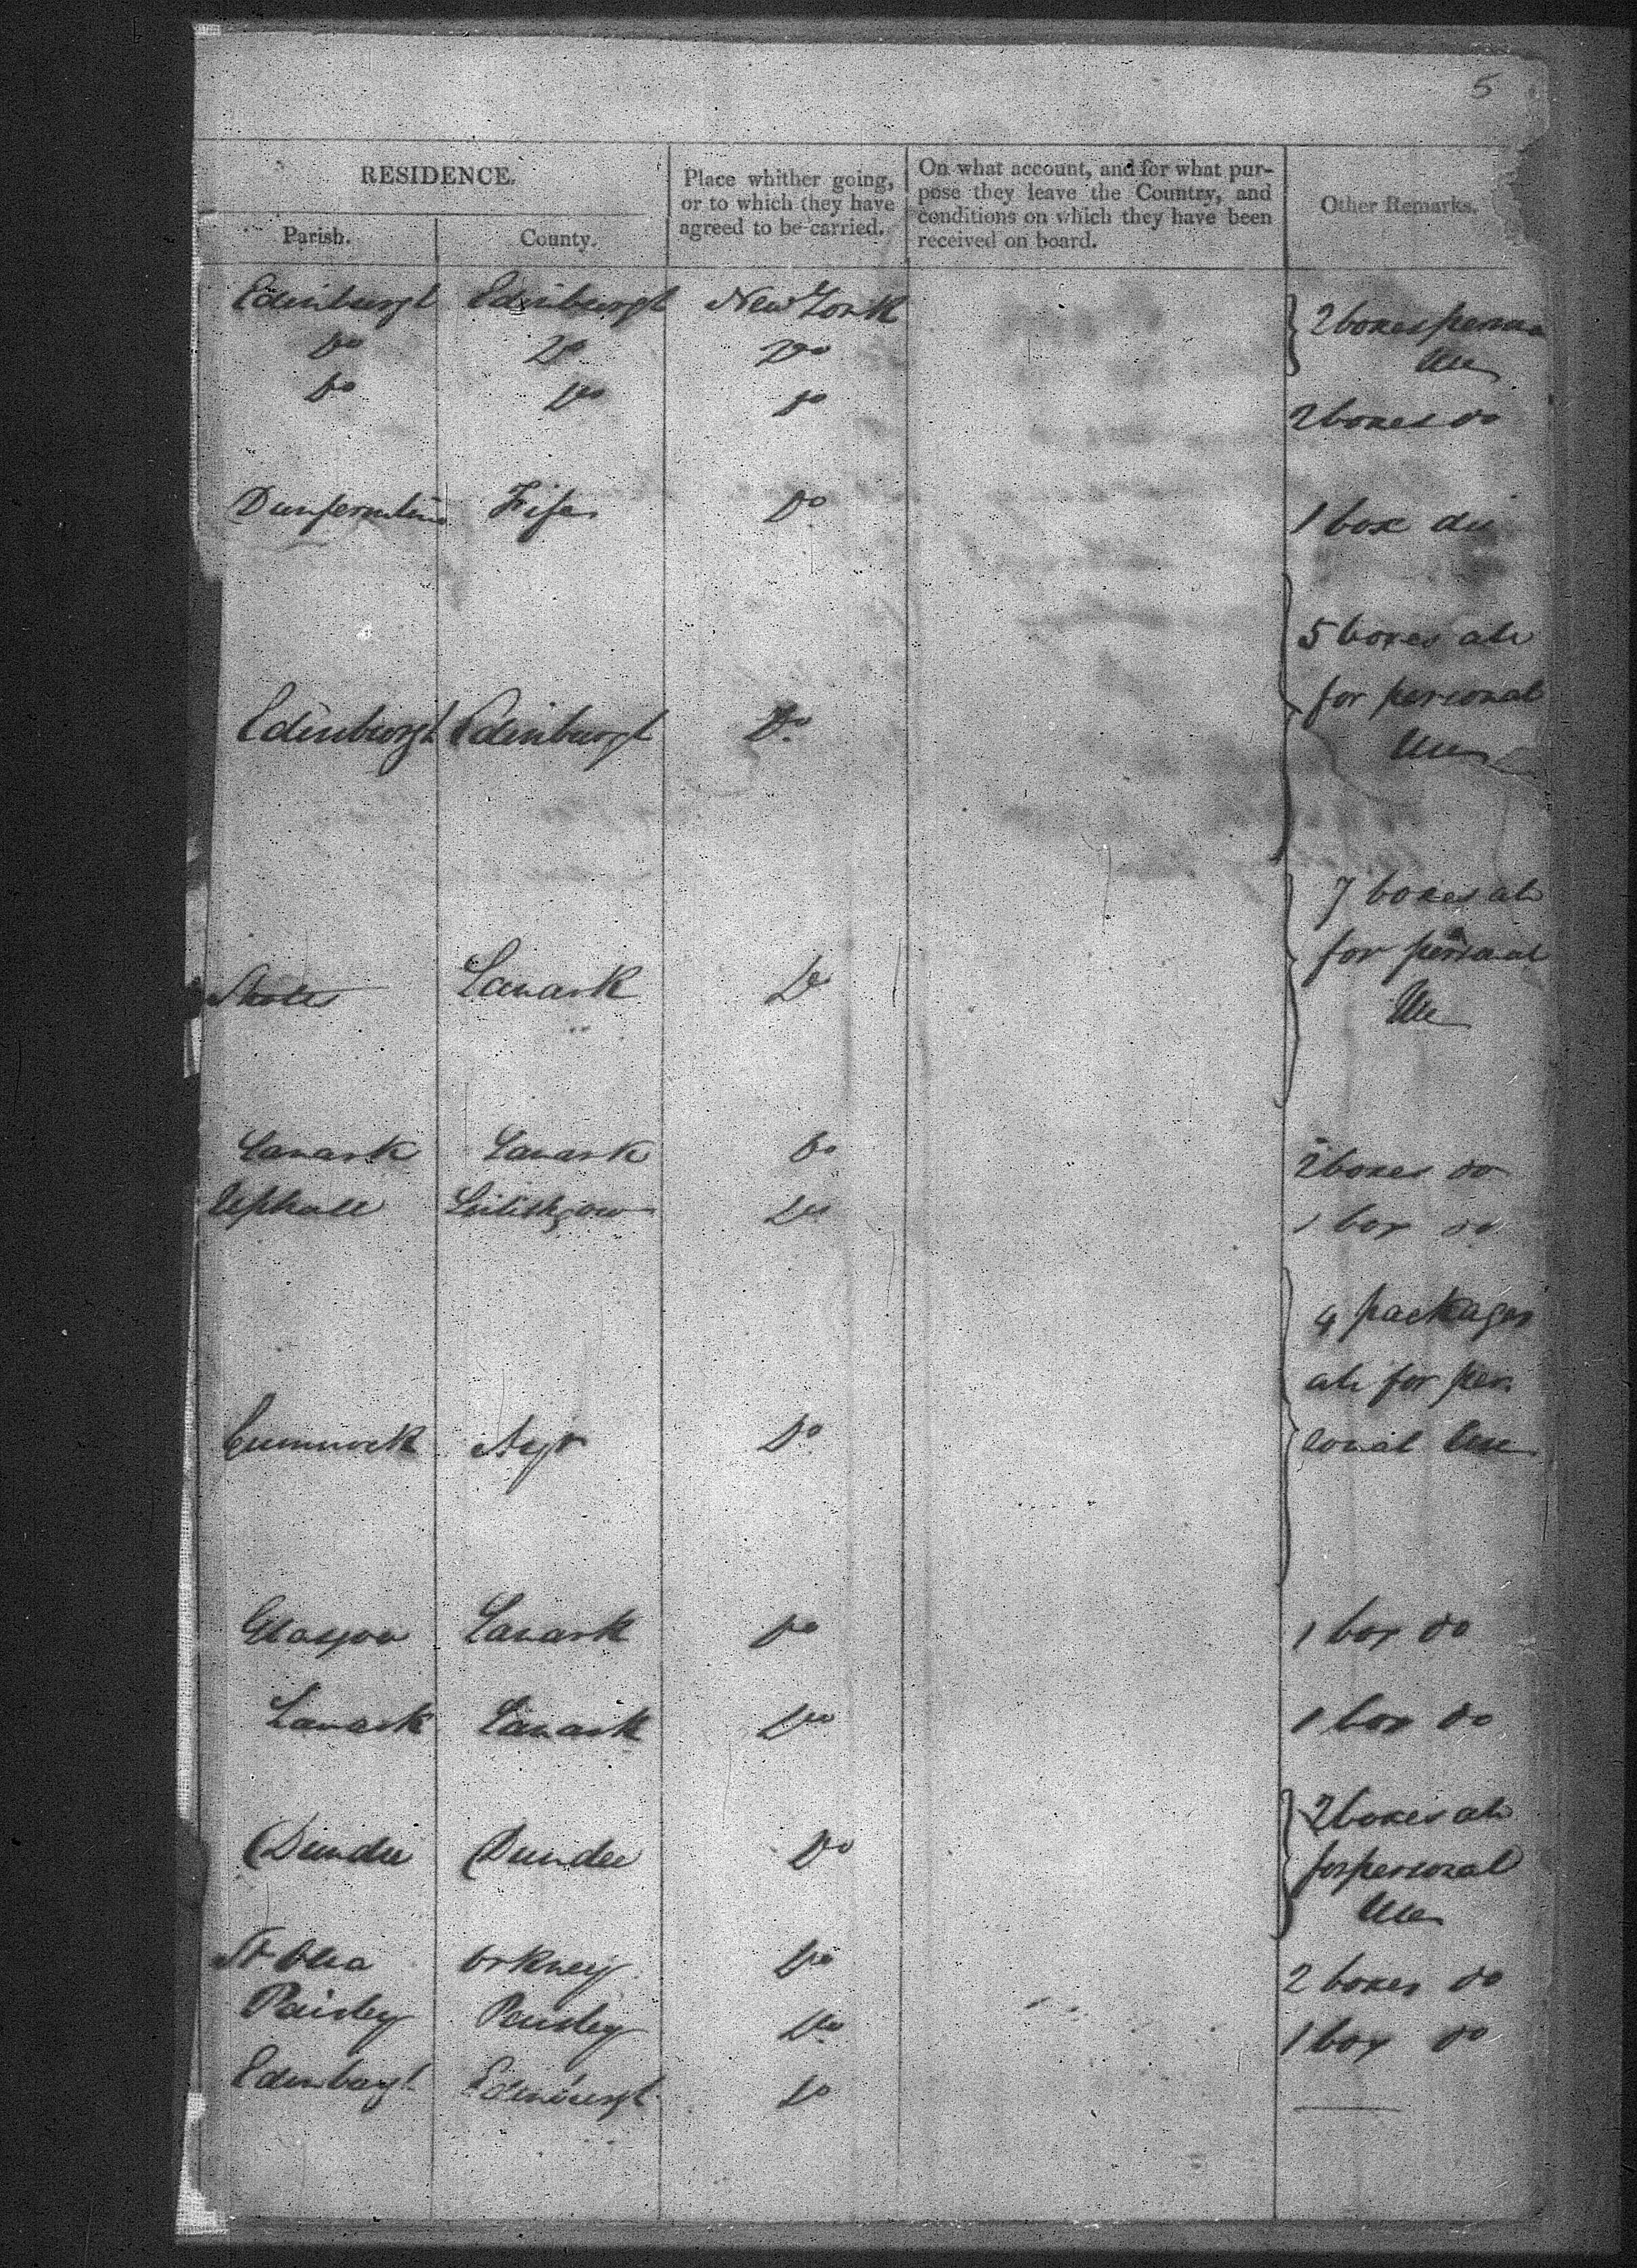 5
RESIDENCE.
Parish.
County.
Place whither going,
or to which they have
agreed to be carried.
On what account, and for what pur-
pose they leave the Country, and
conditions on which they have been
received on board.
Other Remarks.
Edinburgh Edinburgh New York 2 boxes persona
Do Do Do Use
Do Do Do 2 boxes do
Dunfermline Fife Do 1 box do
5 boxes all
for personal
Edinburgh Edinburgh Do Use
7 boxes all
for personal
Shotts Lanark Do Use
Lanark Lanark Do 2 boxes do
Uphall Linlithgow Do 1 box do
4 packages
all for per
Cumnock Ayr Do sonal Use
Glasgow Lanark Do 1 box do
Lanark Lanark Do 1 box do
2 boxes all
Dundee Dundee Do for personal
Use
St Ola Orkney Do 2 boxes do
Paisley Paisley Do 1 box do
Edinburgh Edinburgh Do